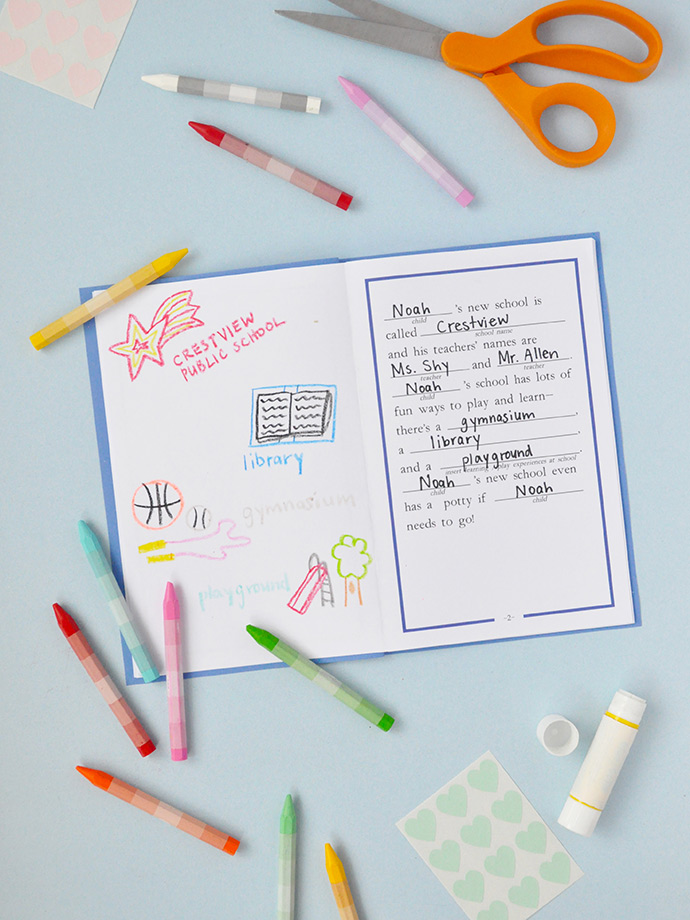 CRESTVIEW
PUBLIC SCHOOL
library
gymnasium
playground
Noah 's new school is
child
called Crestview
school name
and his teachers' names are
Ms. Shy and Mr. Allen.
teacher teacher
Noah 's school has lots of
child
fun ways to play and learn—
there's a gymnasium,
a library,
and a playground.
insert learning + play experiences at school
Noah 's new school even
child
has a potty if Noah
child
needs to go!
-2-